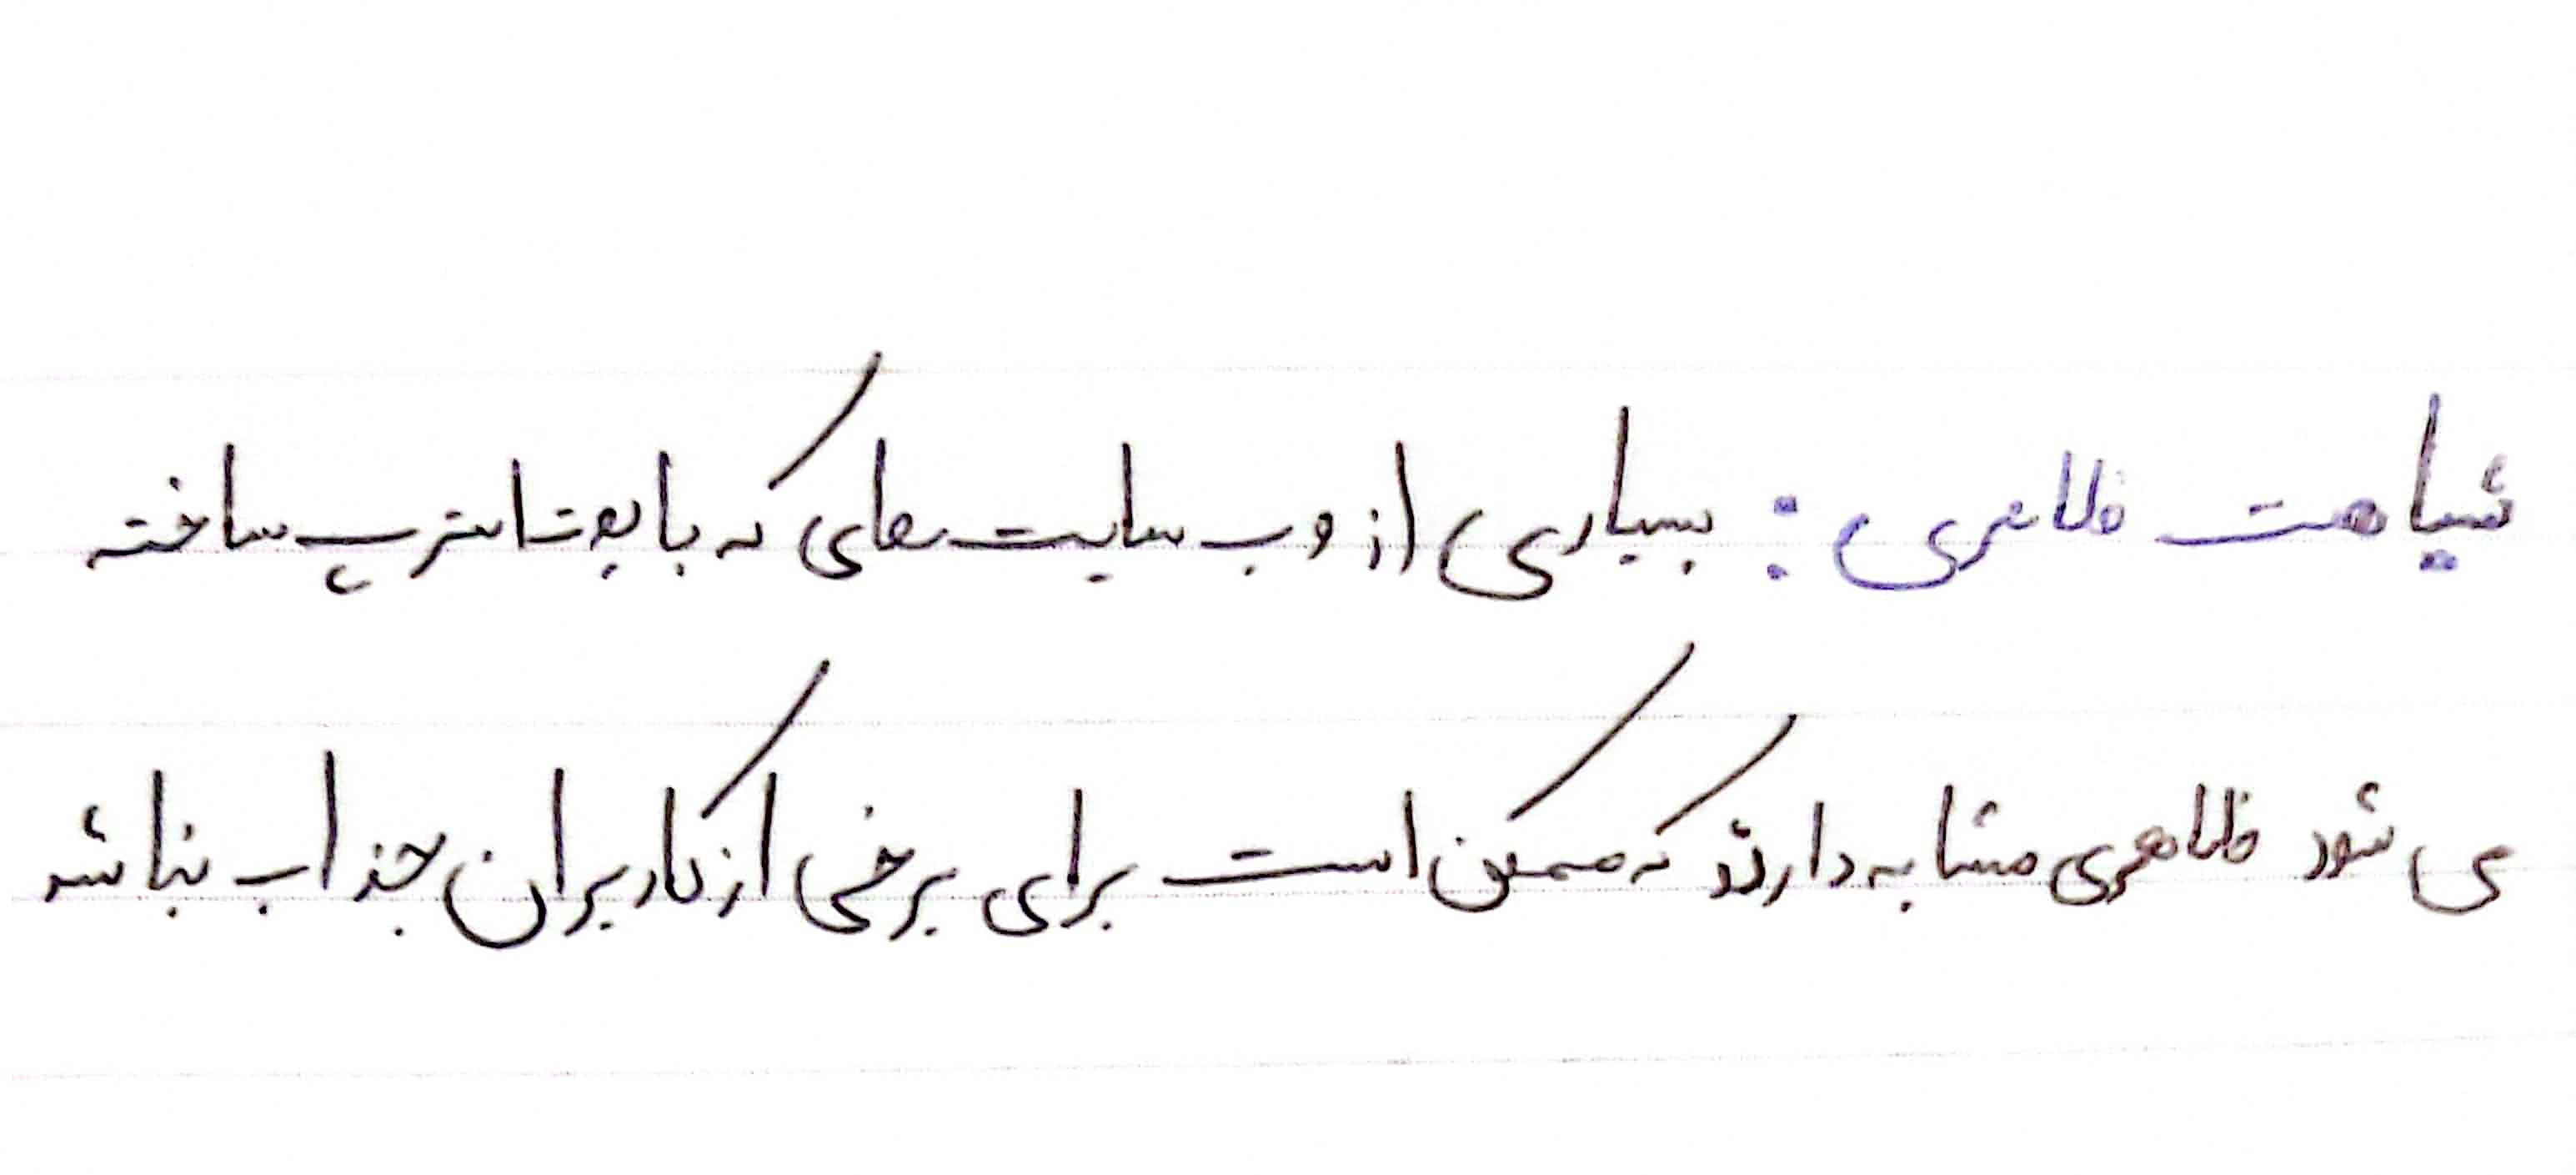 شباهت ظاهری : بسیاری از وب سایت های که با بوت استرپ ساخته
می شود ظاهری مشابه دارند که ممکن است برای برخی از کاربران جذاب نباشد